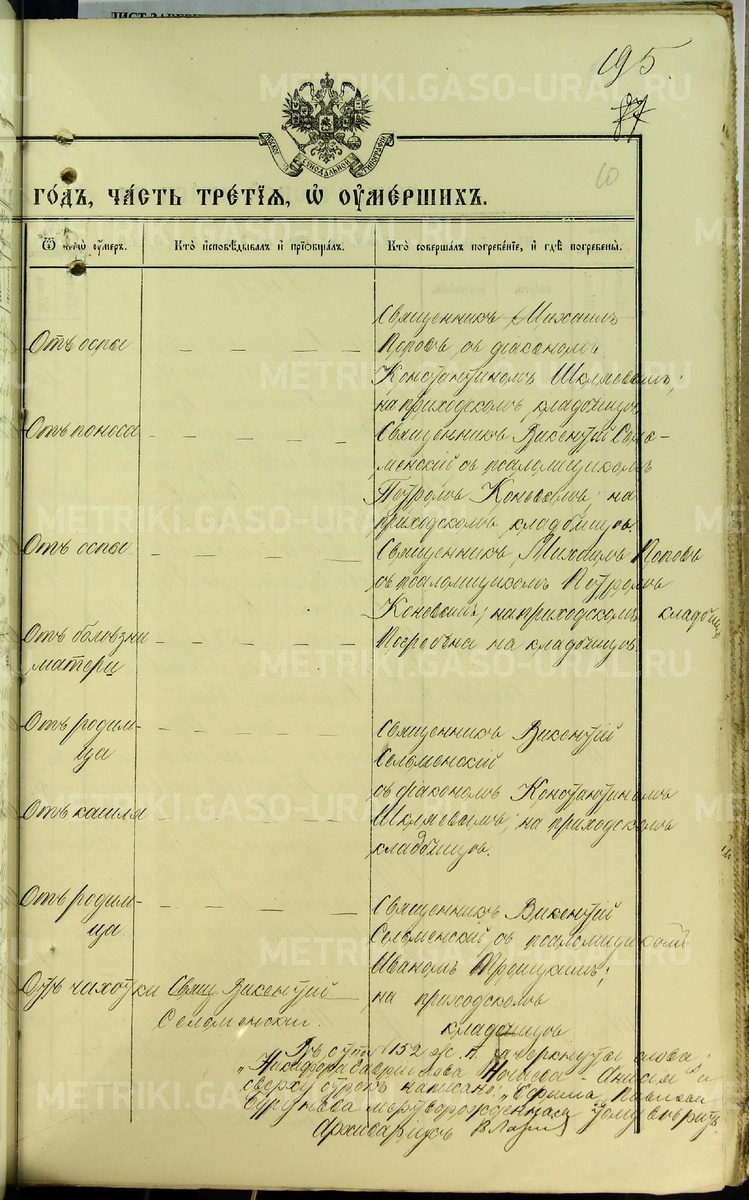 195.
87
10
ГОДЪ, ЧАСТЬ ТРЕТІЯ, Ѡ ОУМЕРШИХЪ.
Ѿ чегѡ оумеръ.
Кто исповѣдывалъ и пріобщалъ.
Кто совершалъ погребеніе, и гдѣ погребены.
Отъ оспы
Священникъ Михаилъ
Поповъ съ діакономъ
Константиномъ Шкляевымъ;
на приходскомъ кладбищѣ
Отъ поноса
Священникъ Викентій Село-
менскій съ псаломщикомъ
Петромъ Коневымъ; на
приходскомъ кладбищѣ.
Отъ оспы.
Священникъ Михаилъ Поповъ
съ псаломщикомъ Петромъ
Коневымъ; на приходскомъ кладбищѣ
Отъ болѣзни
матери
Погребена на кладбищѣ.
Отъ родим-
ца
Священникъ Викентій
Селоменскій
съ діакономъ Константиномъ
Отъ кашля
Шкляевымъ; на приходскомъ
кладбищѣ.
Отъ родим-
ца
Священникъ Викентій
Селоменскій съ псаломщикомъ
Иваномъ Троицкимъ;
Отъ чахотки
Свящ. Викентій
Селоменскій.
на приходскомъ
кладбищѣ
152 ж. п. зачеркнуты слова:
"Никифора Гаврилова - Анисія" и
сверху строкъ написано: "Ефима Павлова
мертворожденная" тому вѣрить
Архиваріусъ
METRIKI.GASO-URAL.RU